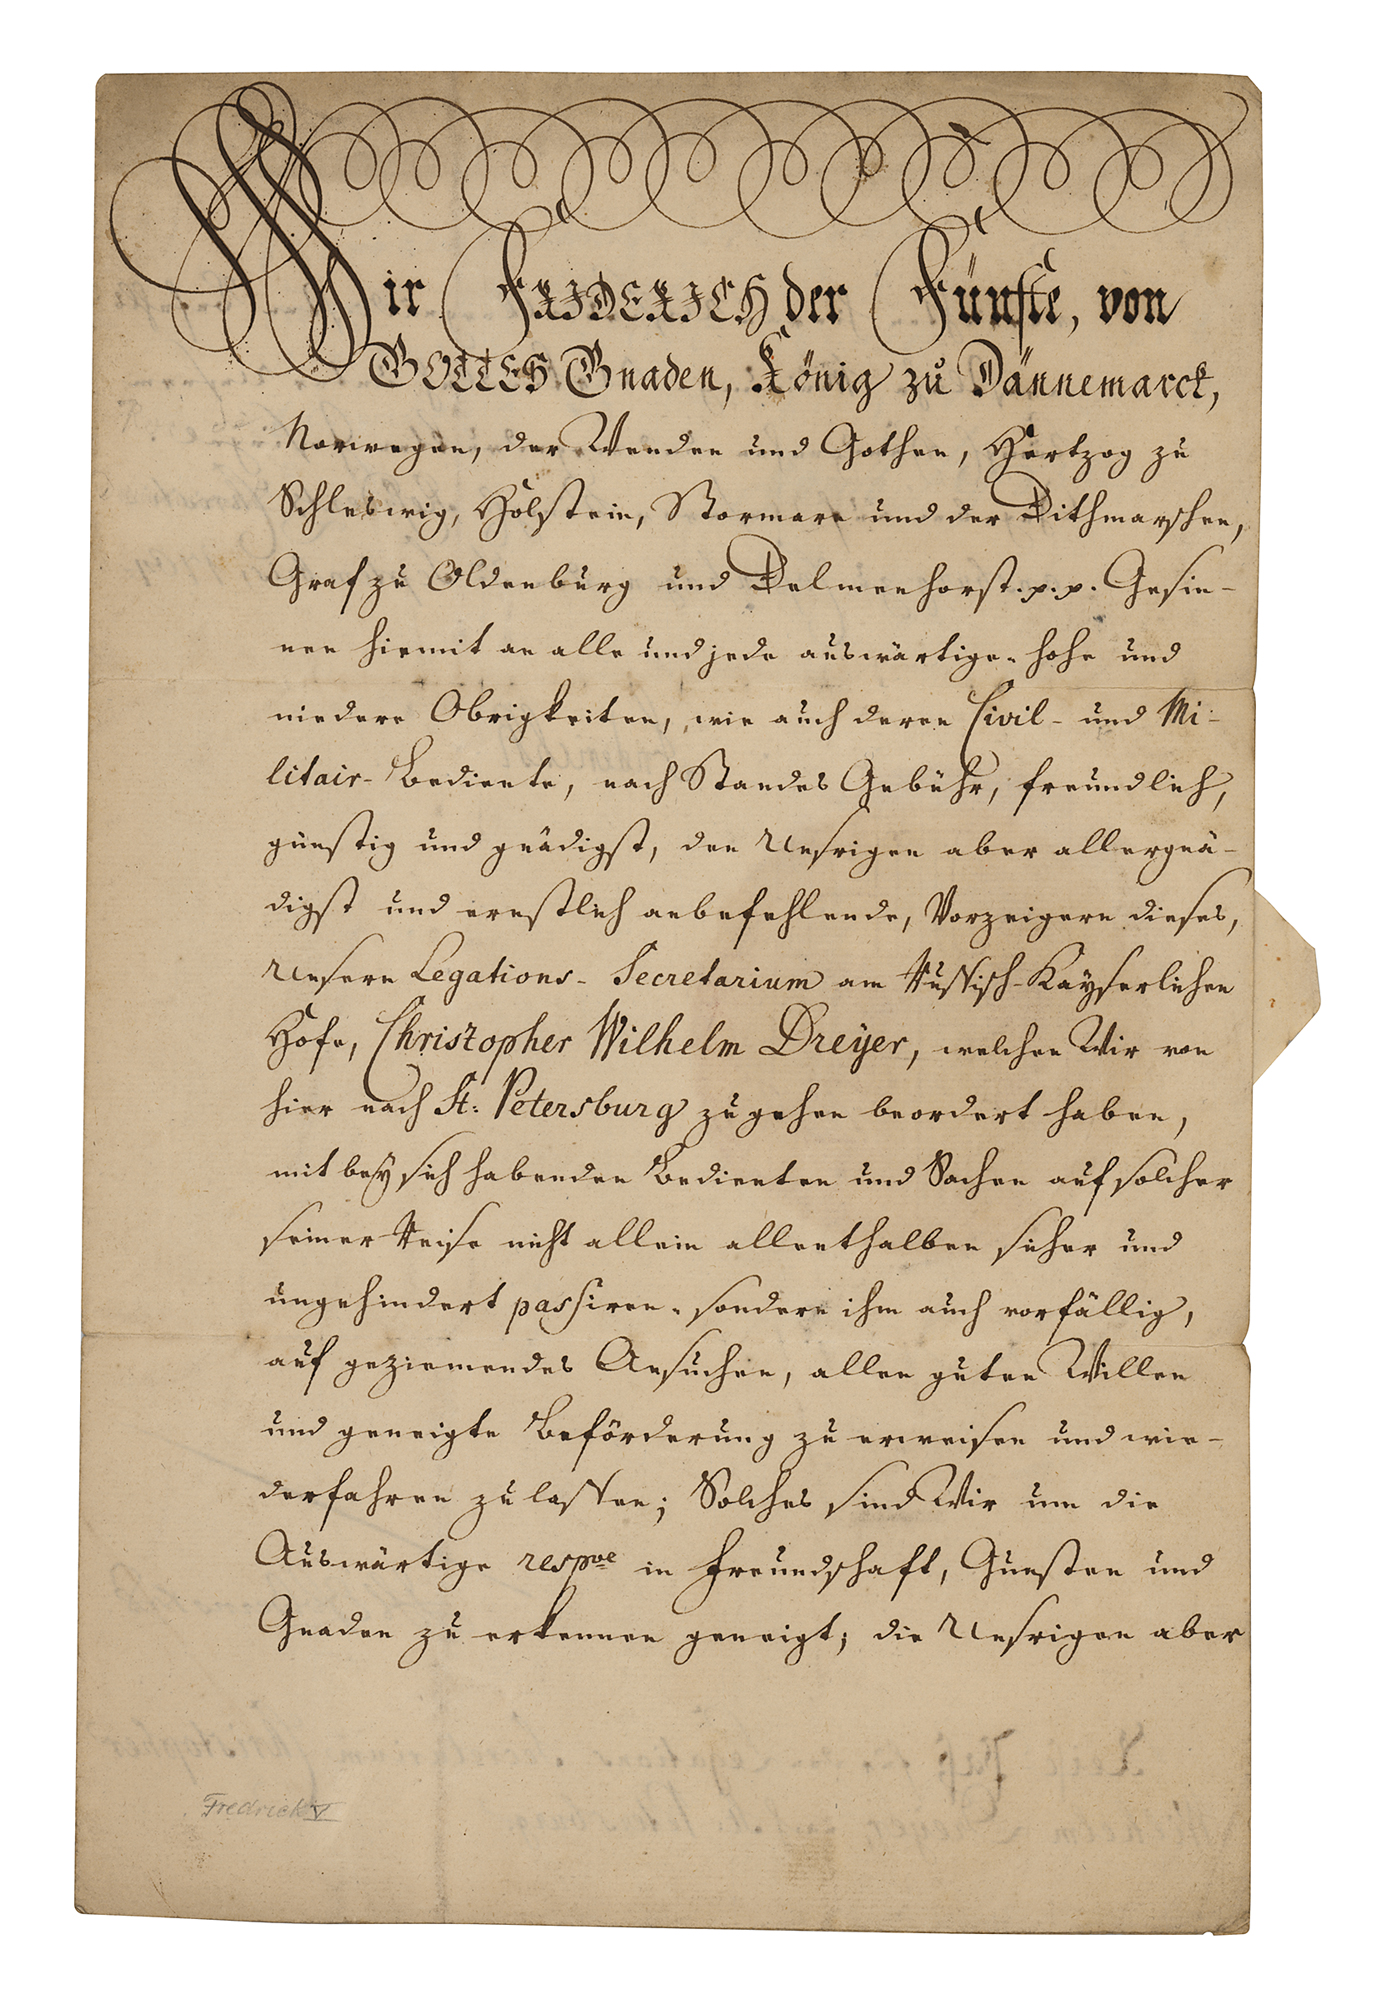 Wir FRIDERICH der Fünfte, von
GOTTES Gnaden, König zu Dännemarck,
Norwegen, der Wenden und Gothen, Hertzog zu
Schleswig, Holstein, Stormarn und der Dithmarschen,
Graf zu Oldenburg und Delmenhorst. p. p. Gesin-
nen hiemit an alle und jede auswärtige hohe und
niedere Obrigkeiten, wie auch deren Civil- und Mi-
litair- Bediente, nach Standes Gebühr, freundlich,
günstig und gnädigst, den Unsrigen aber allergnä-
digst und ernstlich anbefehlende, Vorzeigern dieses,
Unsern Legations- Secretarium am Russisch-Kayserlichen
Hofe, Christopher Wilhelm Dreyer, welchen Wir von
hier nach St: Petersburg zu gehen beordert haben,
mit bey sich habenden Bedienten und Sachen auf solcher
seiner Reise nicht allein allenthalben sicher und
ungehindert passiren, sondern ihm auch vorfällig,
auf geziemendes Ansuchen, allen guten Willen
und geneigte Beförderung zu erweisen und wie-
derfahren zu lassen; Solches sind Wir um die
Auswärtige respve in Freundschaft, Gunsten und
Gnaden zu erkennen geneigt; die Unsrigen aber
Fredrick V